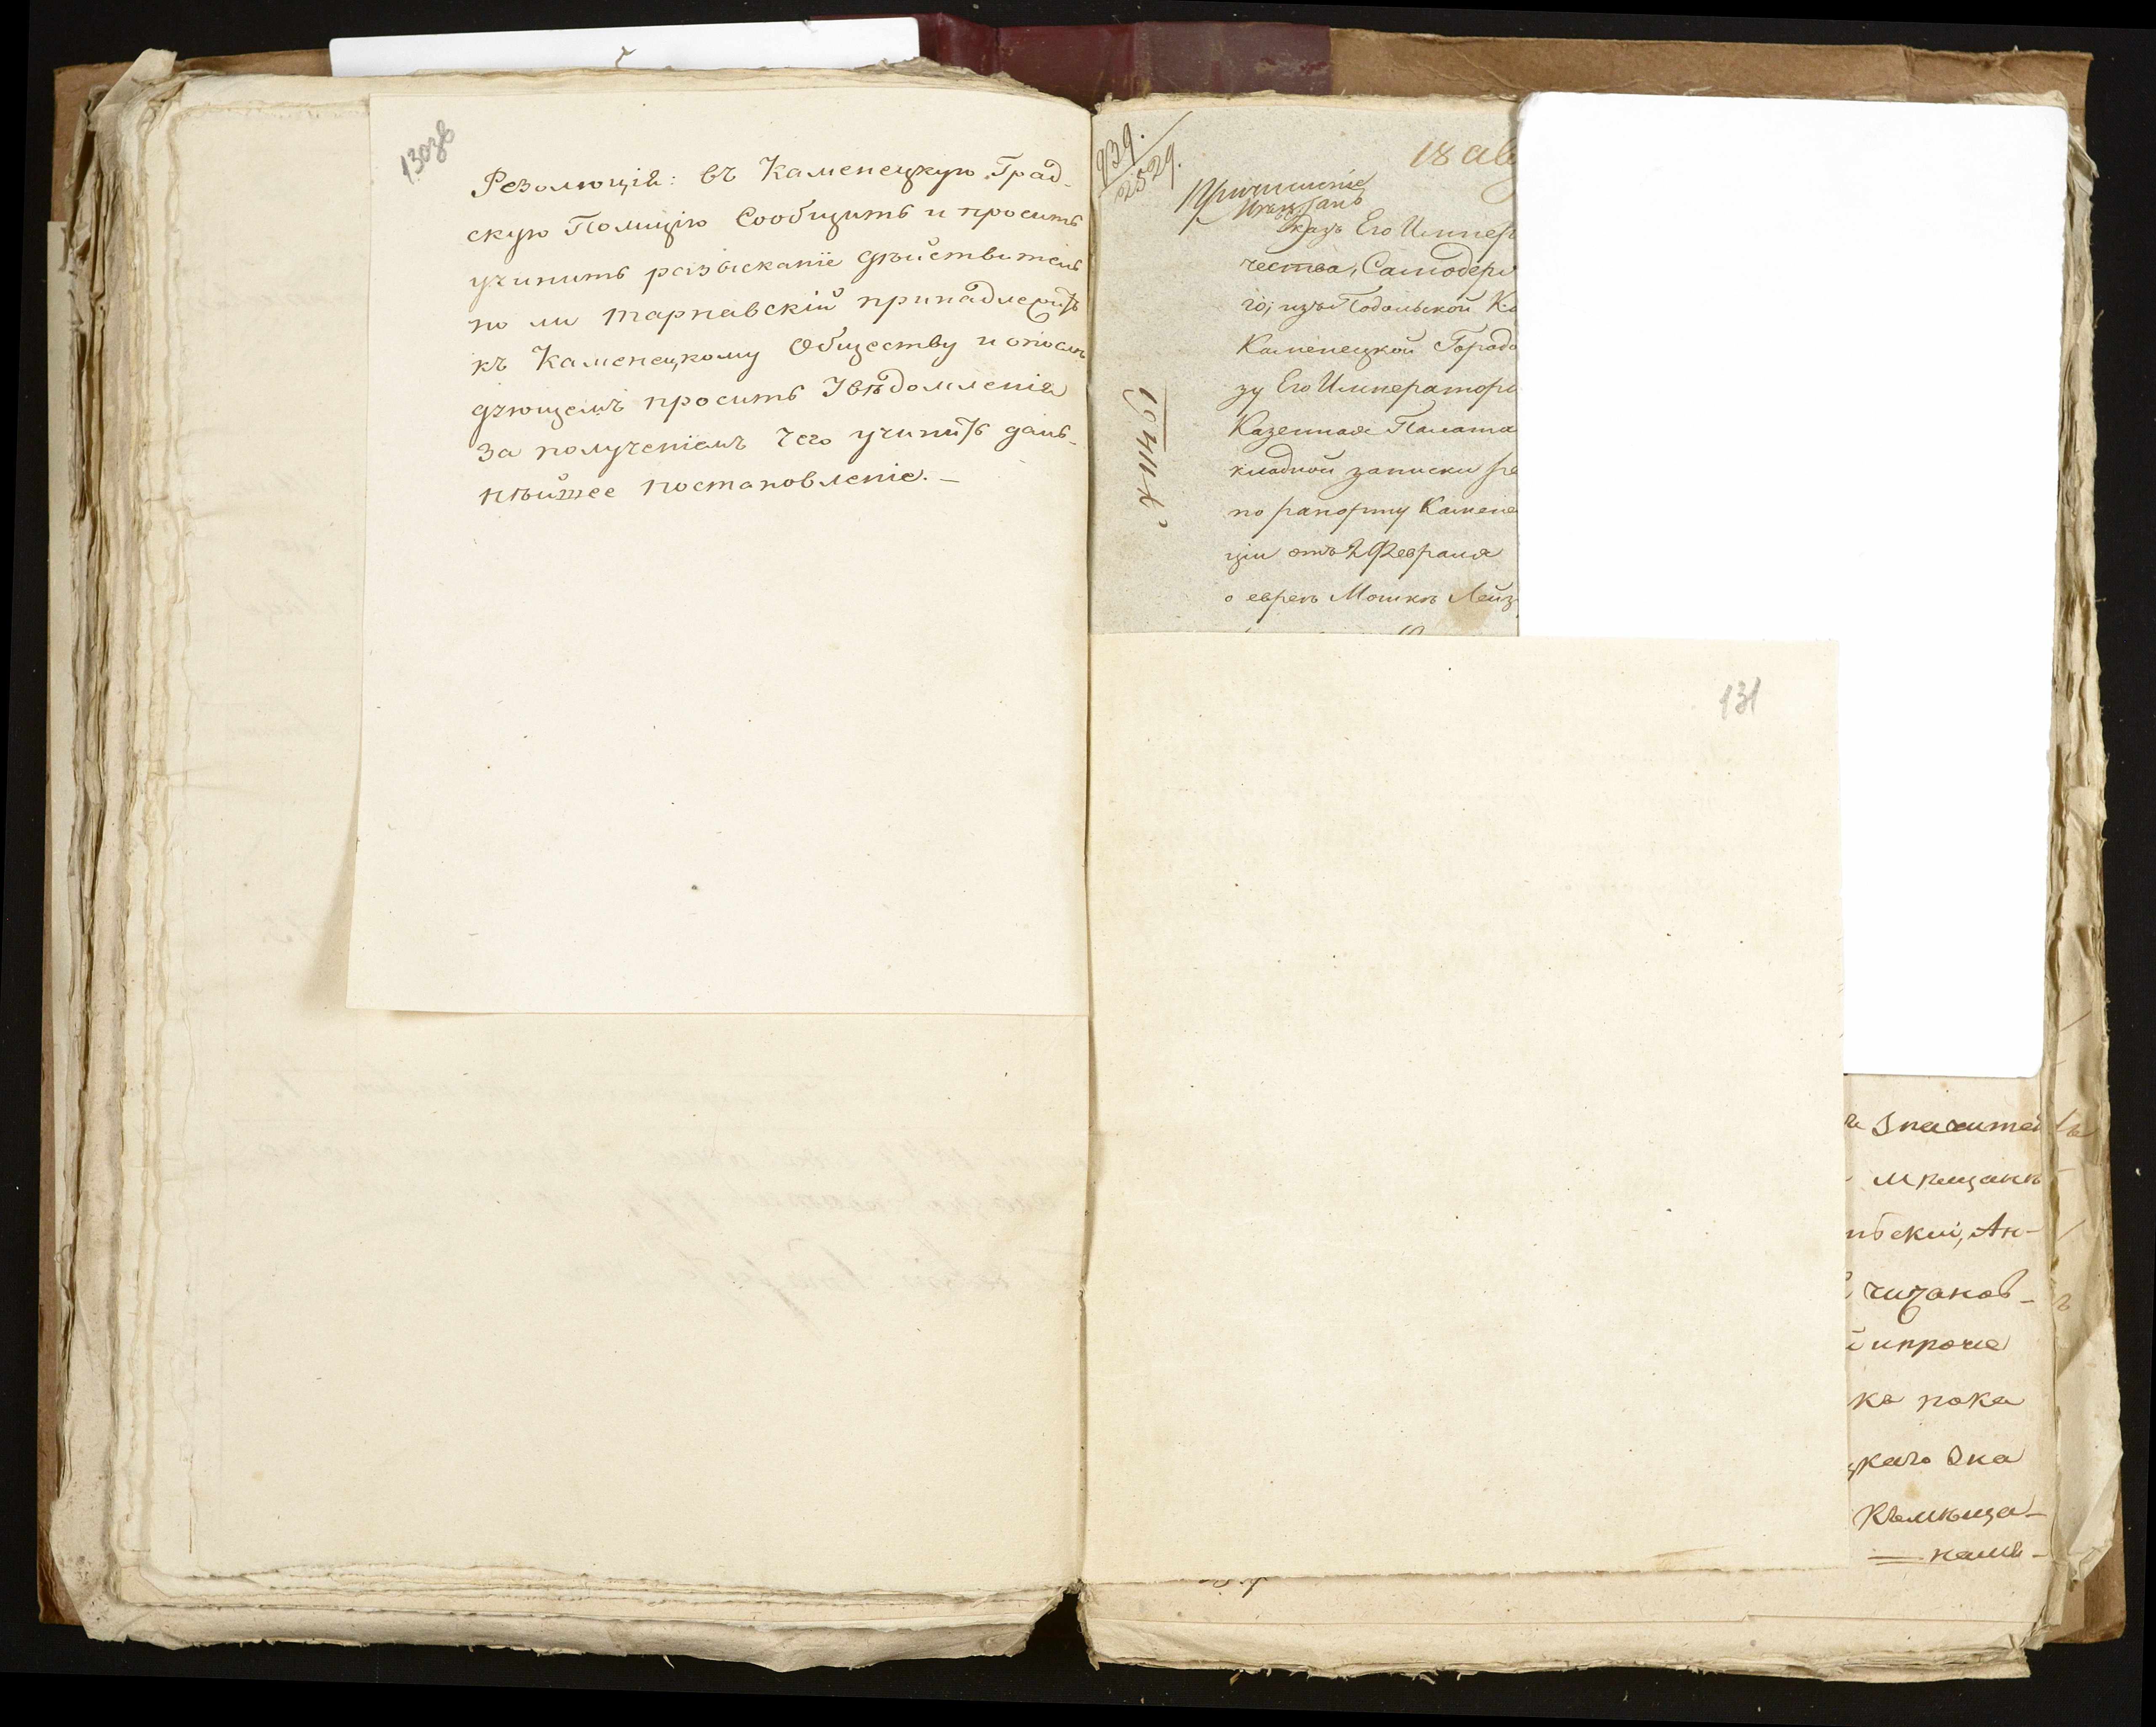 130зв
Резолюція: въ Каменецкую Град-
скую Полицію Сообщить и просить
учинить разысканіе дѣйствитель
но ли тарнавскій принадлежитъ
къ Каменецкому Обществу и опослѣ
дующемъ просить Увѣдомленія
За полученіемъ чего учинить даль-
нѣйшее постановленіе. —
939.
2529.
18 ав
Указъ Его Импер
чества, Самодерж
го; изъ Подольской Ка
Каменецкой Городо
зу Его Император
Казенная Палата
кладной записки
по рапорту Камене
ціи отъ 2 Февраля
о евреѣ Мошкѣ Лейз
131
Значител
мѣщанъ
Ан-
чизанов-
и проче
ка пока
цкаго Зна
Къмѣща-